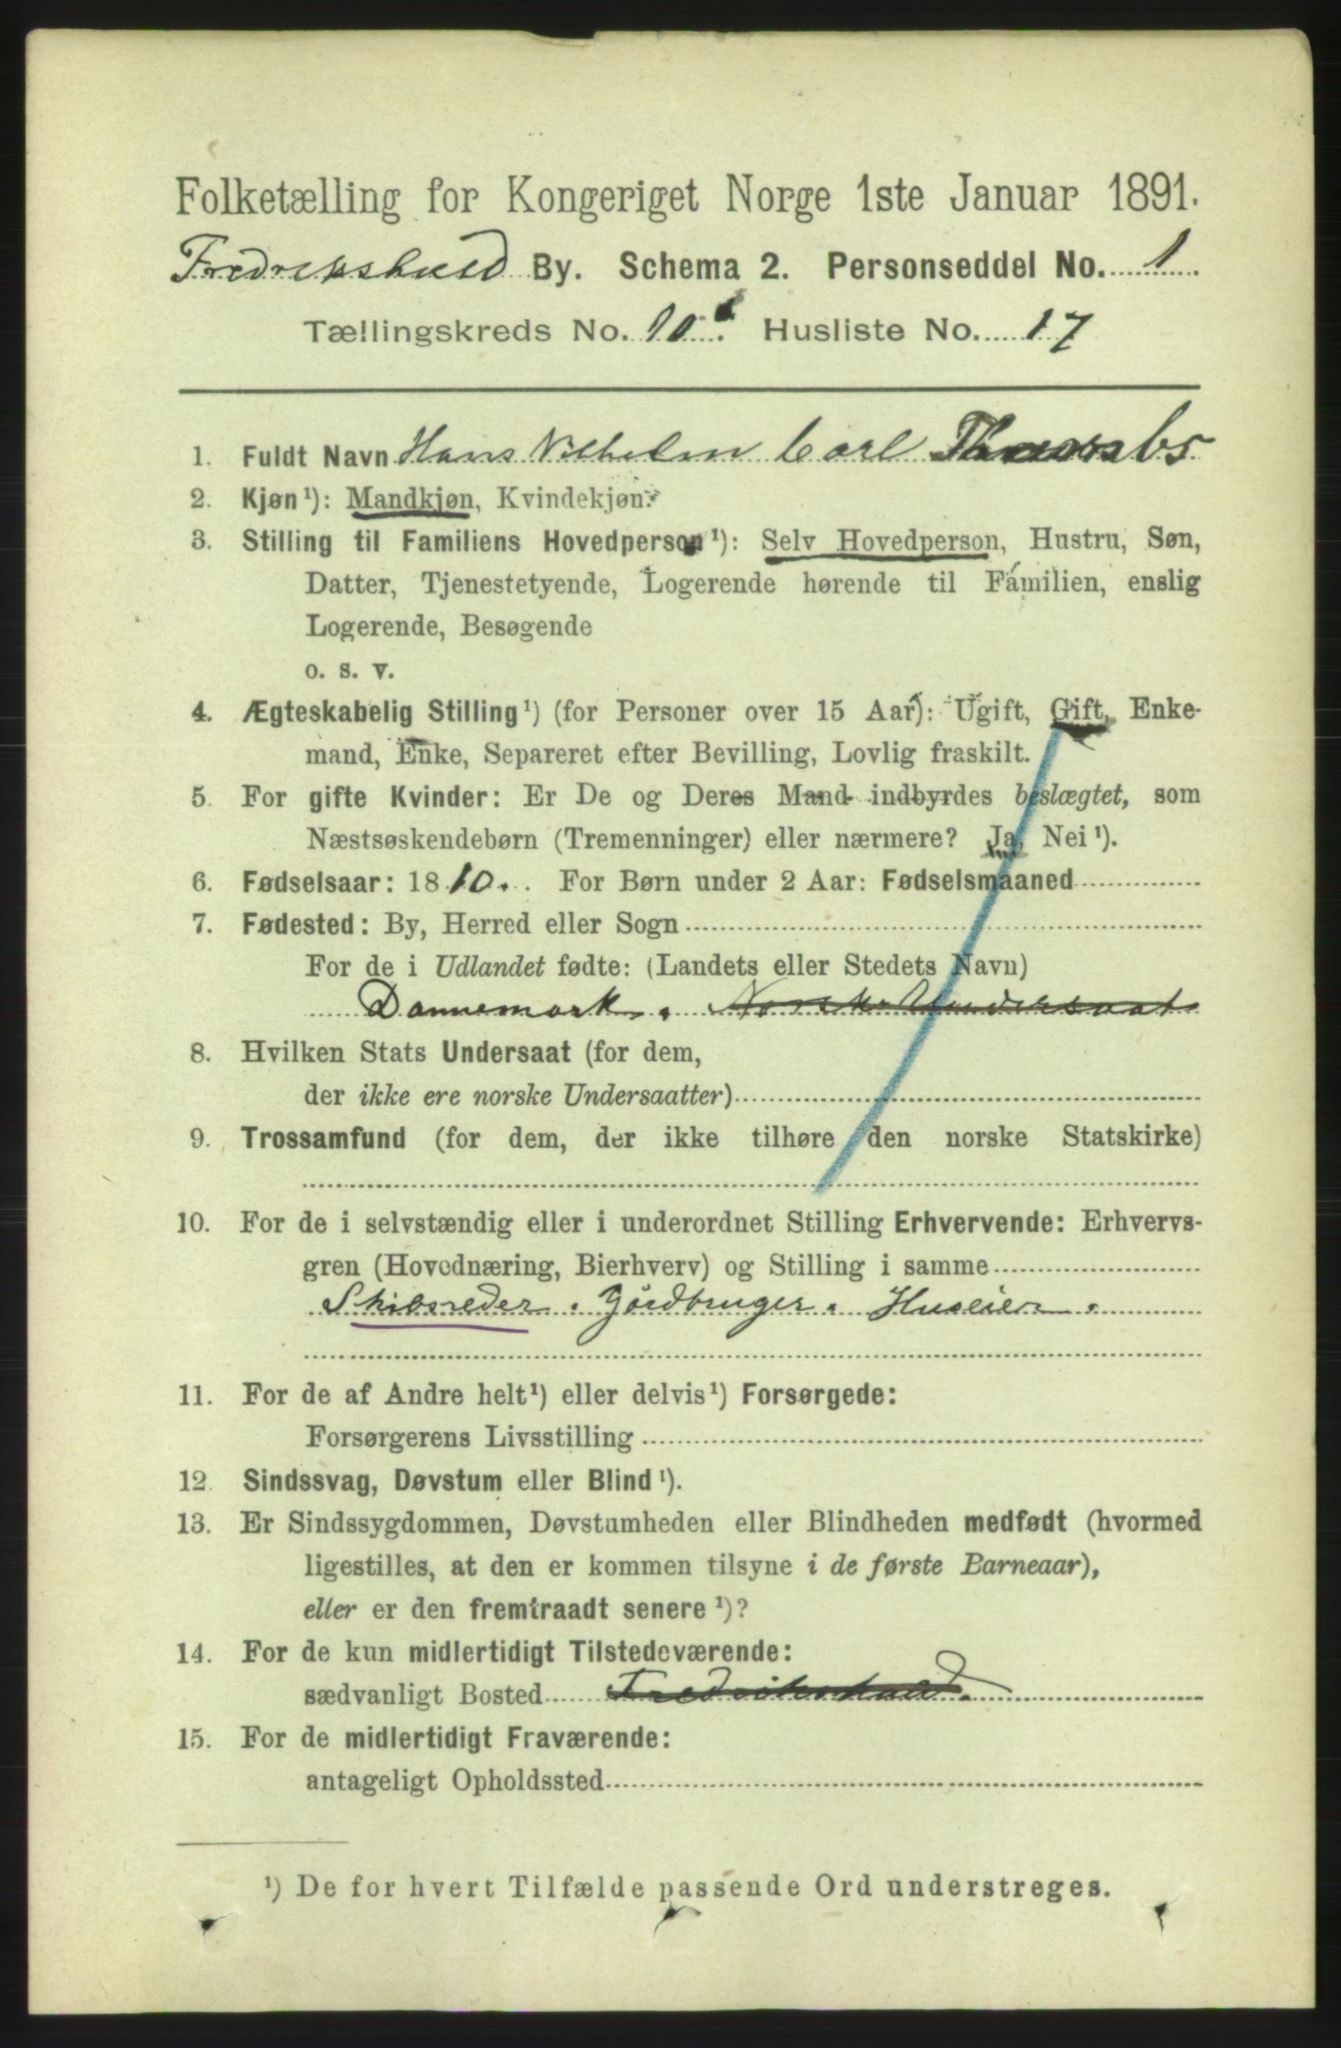 Folketælling for Kongeriget Norge 1ste Januar 1891.
Fredrikshald By. Schema 2. Personseddel No. 1
Tællingskreds No. 10 Husliste No. 17
1. Fuldt Navn Hans Vilhelm Carl
2. Kjøn¹): Mandkjøn, Kvindekjøn.
3. Stilling til Familiens Hovedperson¹): Selv Hovedperson, Hustru, Søn,
Datter, Tjenestetyende, Logerende hørende til Familien, enslig
Logerende, Besøgende
o. s. v.
4. Ægteskabelig Stilling¹) (for Personer over 15 Aar): Ugift, Gift, Enke-
mand, Enke, Separeret efter Bevilling, Lovlig fraskilt.
5. For gifte Kvinder: Er De og Deres Mand indbyrdes beslægtet, som
Næstsøskendebørn (Tremenninger) eller nærmere? Ja, Nei¹).
6. Fødselsaar: 1810. For Børn under 2 Aar: Fødselsmaaned
7. Fødested: By, Herred eller Sogn
For de i Udlandet fødte: (Landets eller Stedets Navn)
Dannemark. Norsk Undersaat
8. Hvilken Stats Undersaat (for dem,
der ikke ere norske Undersaatter)
9. Trossamfund (for dem, der ikke tilhøre den norske Statskirke)
10. For de i selvstændig eller i underordnet Stilling Erhvervende: Erhvervs-
gren (Hovednæring, Bierhverv) og Stilling i samme
Skibsreder. Gårdbruger. Huseier.
11. For de af Andre helt¹) eller delvis¹) Forsørgede:
Forsørgerens Livsstilling
12. Sindssvag, Døvstum eller Blind¹).
13. Er Sindssygdommen, Døvstumheden eller Blindheden medfødt (hvormed
ligestilles, at den er kommen tilsyne i de første Barneaar),
eller er den fremtraadt senere¹)?
14. For de kun midlertidigt Tilstedeværende:
sædvanligt Bosted Fredrikshald.
15. For de midlertidigt Fraværende:
antageligt Opholdssted
¹) De for hvert Tilfælde passende Ord understreges.